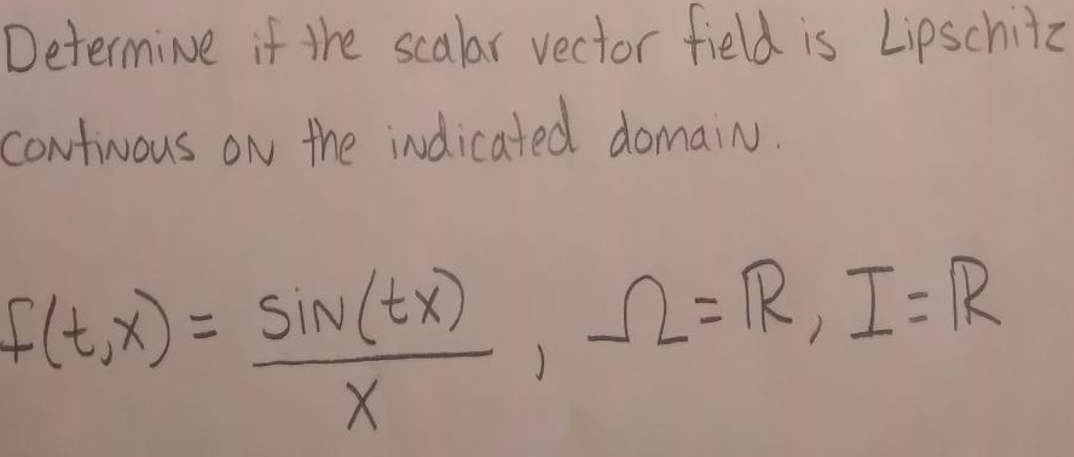 Determine if the scalar vector field is Lipschitz
continous on the indicated domain.
f(t,x) = sin(tx) / x , Ω = ℝ, I = ℝ